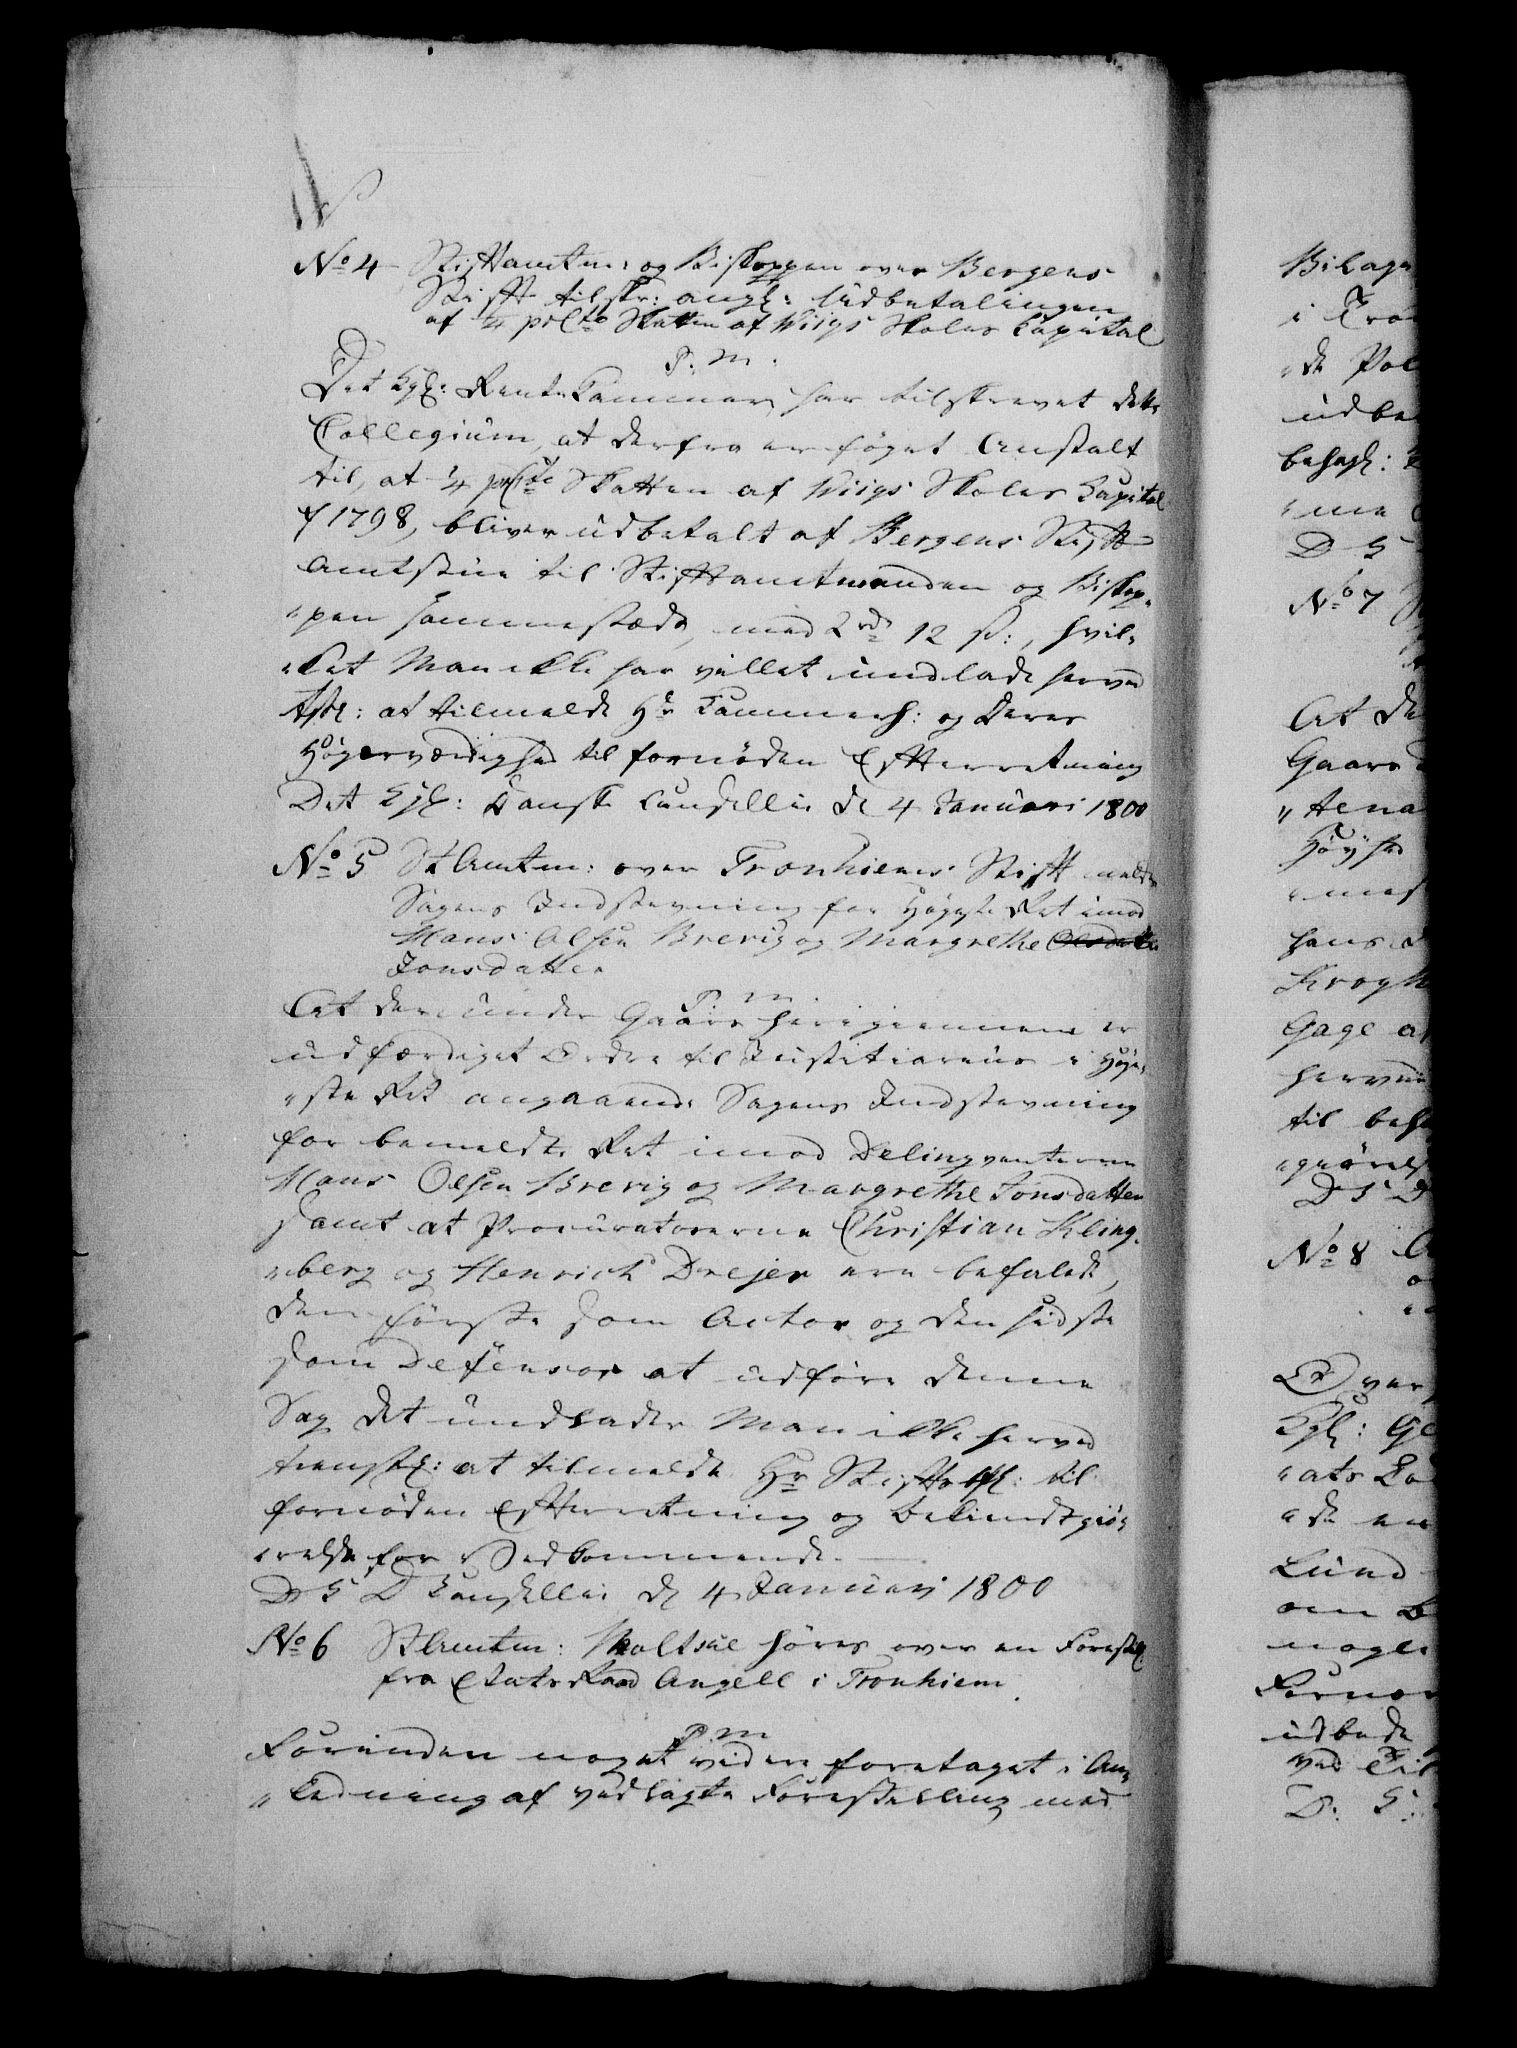 No 4 Stiftamtm: og Biskoppen over Bergens
Stift tilskr: angl: Udbetalingen
af ¼ prCto Skatten af Wiigs Skoles Capital
P. M.
Det Kgl: Rente Kammer har tilskrevet dette
Collegium, at derfra er föyet Anstalt
til, at ¼ prCto Skatten af Wiigs Skoles Capital
f 1798, bliver udbetalt af Bergens Stift-
amtstue til Stiftamtmanden og Biskop-
"pen sammestæds, med 2 rd 12 s:, hvil-
"ket Man ikke har villet undlade herved
tstl: at tilmelde Hr Kammerh: og Deres
Höyærværdighed til fornøden Efterretning
Det Kgl: Danske Cancellie d 4 Januari 1800
No 5 StAmtm: over Tronhiems Stift meldes
Sagens Indstevning for Höyeste Ret imod
Hans Olsen Brevig og Margrethe Olsdatter
Jonsdatter
P. M.
At der under Gaars her igiennem er
udfærdiget Ordre til Justitiarius i Höye-
"ste Ret angaaende Sagens Indstevning
for bemeldte Ret imod Delinqventerne
Hans Olsen Brevig og Margrethe Jonsdatter
samt at Procuratorerne Christian Kling-
"berg og Henrich Drejer ere befalede,
den förste som Actor og den sidste
som Defensor at udföre denne
Sag det undlader Man ikke herved
tienstl: at tilmelde Hr Stiftsbfl: til
fornöden Efterretning og Bekiendtgiö-
"relse for Vedkommende.
D K D Cancellie d 4 Januari 1800
No 6 StAmtm: Moltke höres over en Forestl:
fra Etats Raad Angell i Tronhiem
P. M
Forinden noget videre foretages i An-
"ledning af vedlagte Forestilling med
Bilage
i Tron
"de Pol
udbe
behagl:
"me
D K
No 7
At de
Gaars
"tena
Höyhed
"mest
hans
Krogh
Gage a
herved
til beha
"giörels
D K D
No 8
Over
Kgl: Ge
"ats
"de en
Lund
om
nogle
Fornø
udbede
ved Til
D: K: